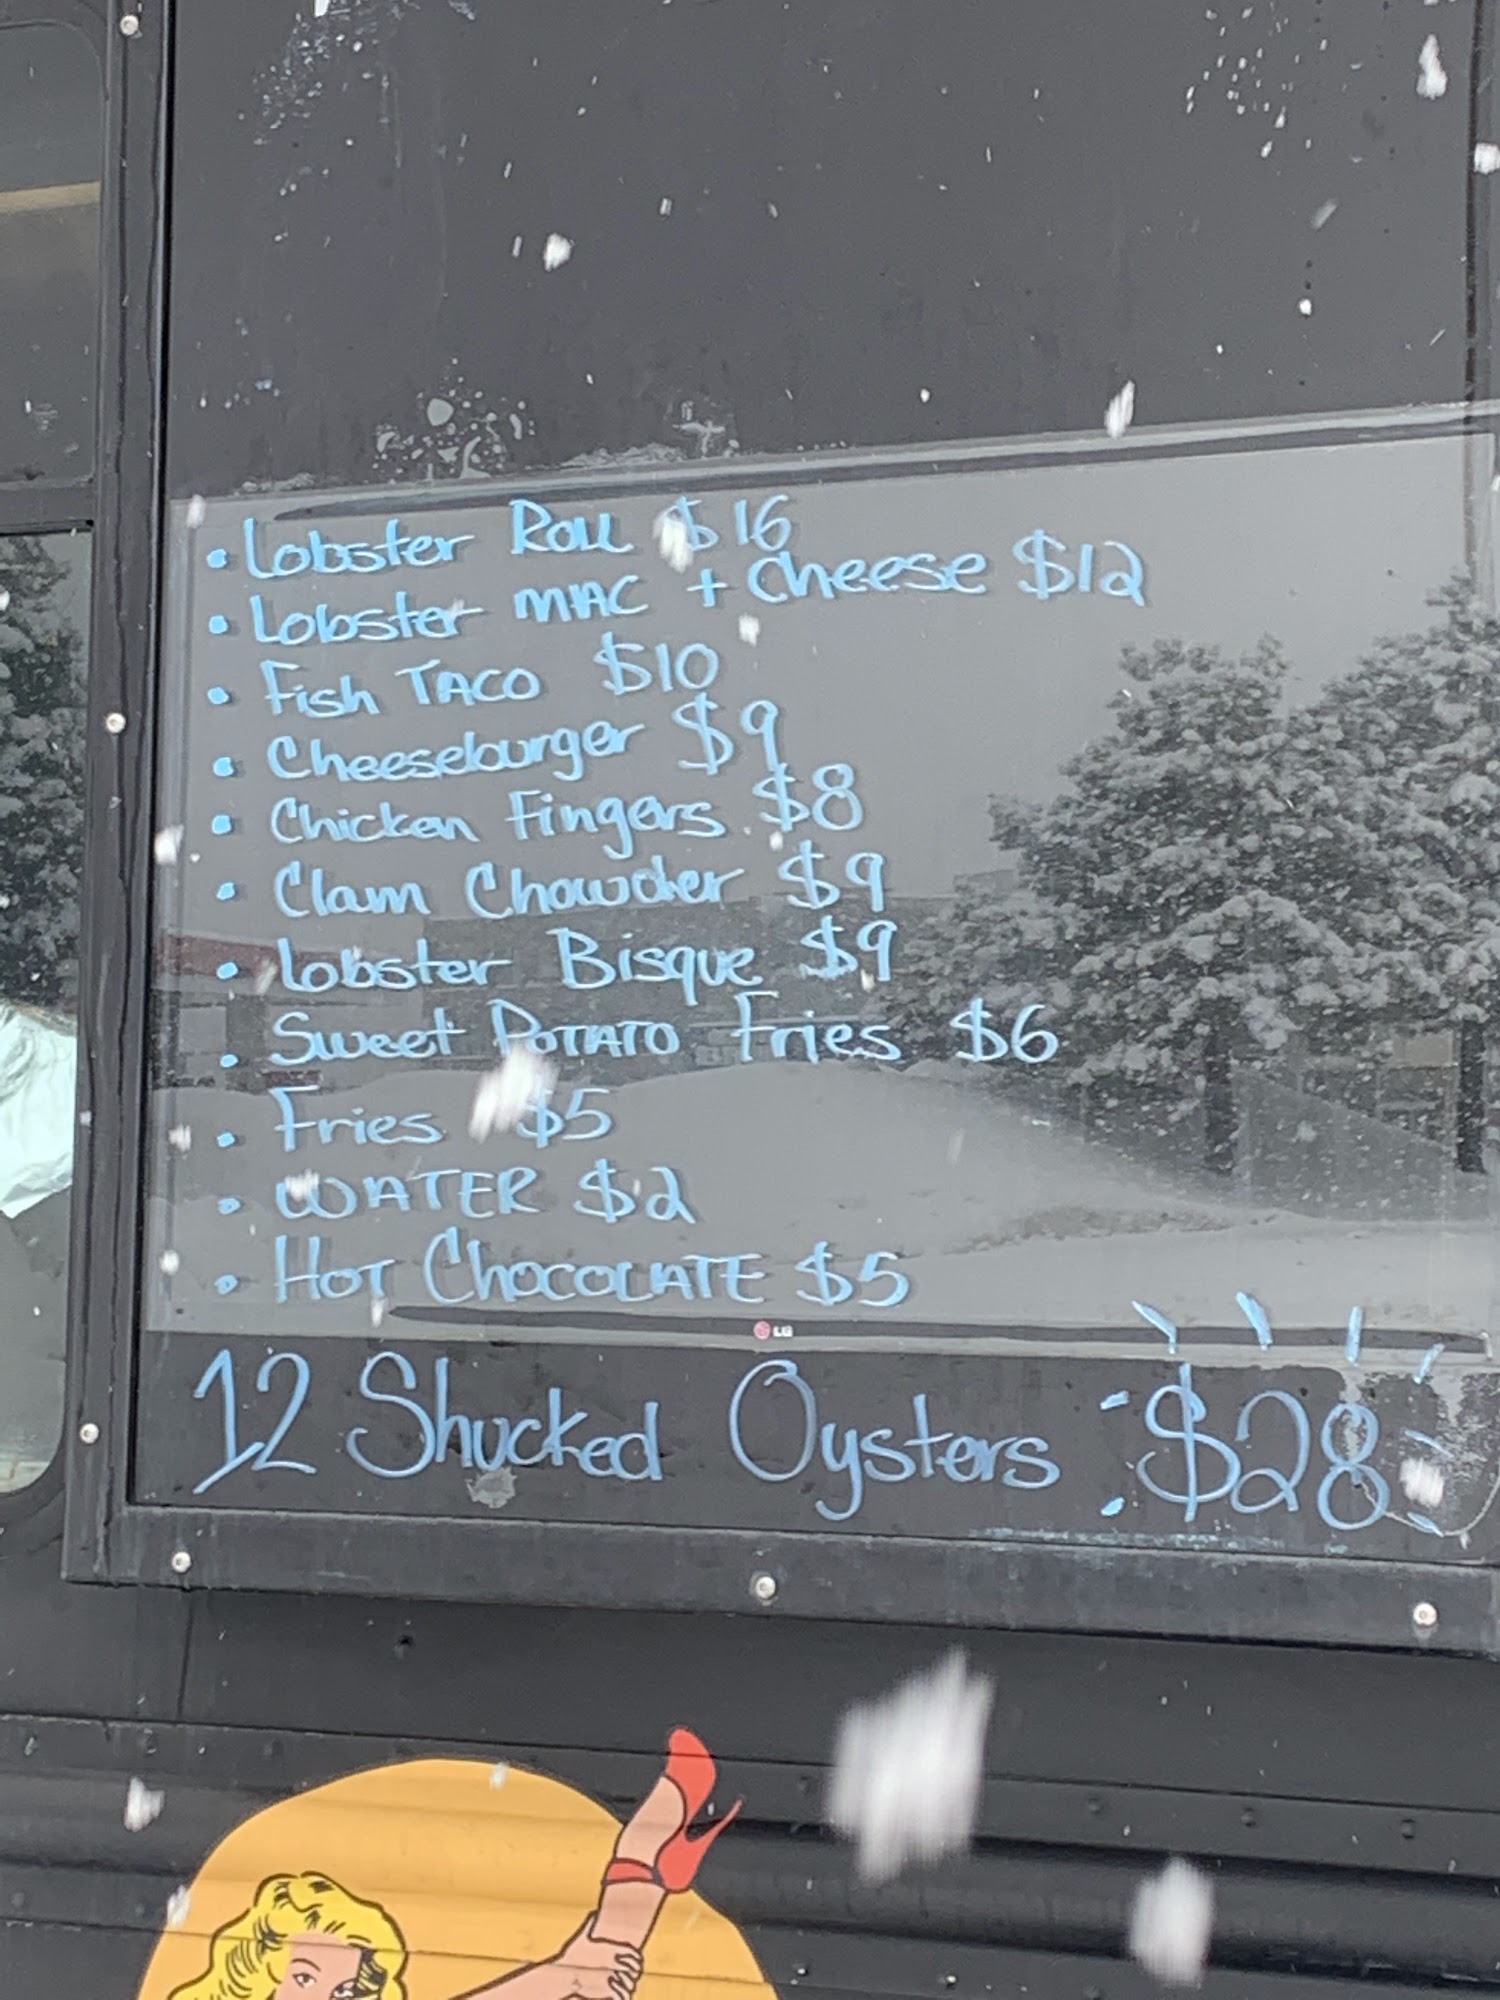 • Lobster Roll $16
• Lobster MAC + Cheese $12
• Fish TACO $10
• Cheeseburger $9
• Chicken Fingers $8
• Clam Chowder $9
• Lobster Bisque $9
• Sweet POTATO Fries $6
• Fries $5
• WATER $2
• HOT CHOCOLATE $5
LG
12 Shucked Oysters $28